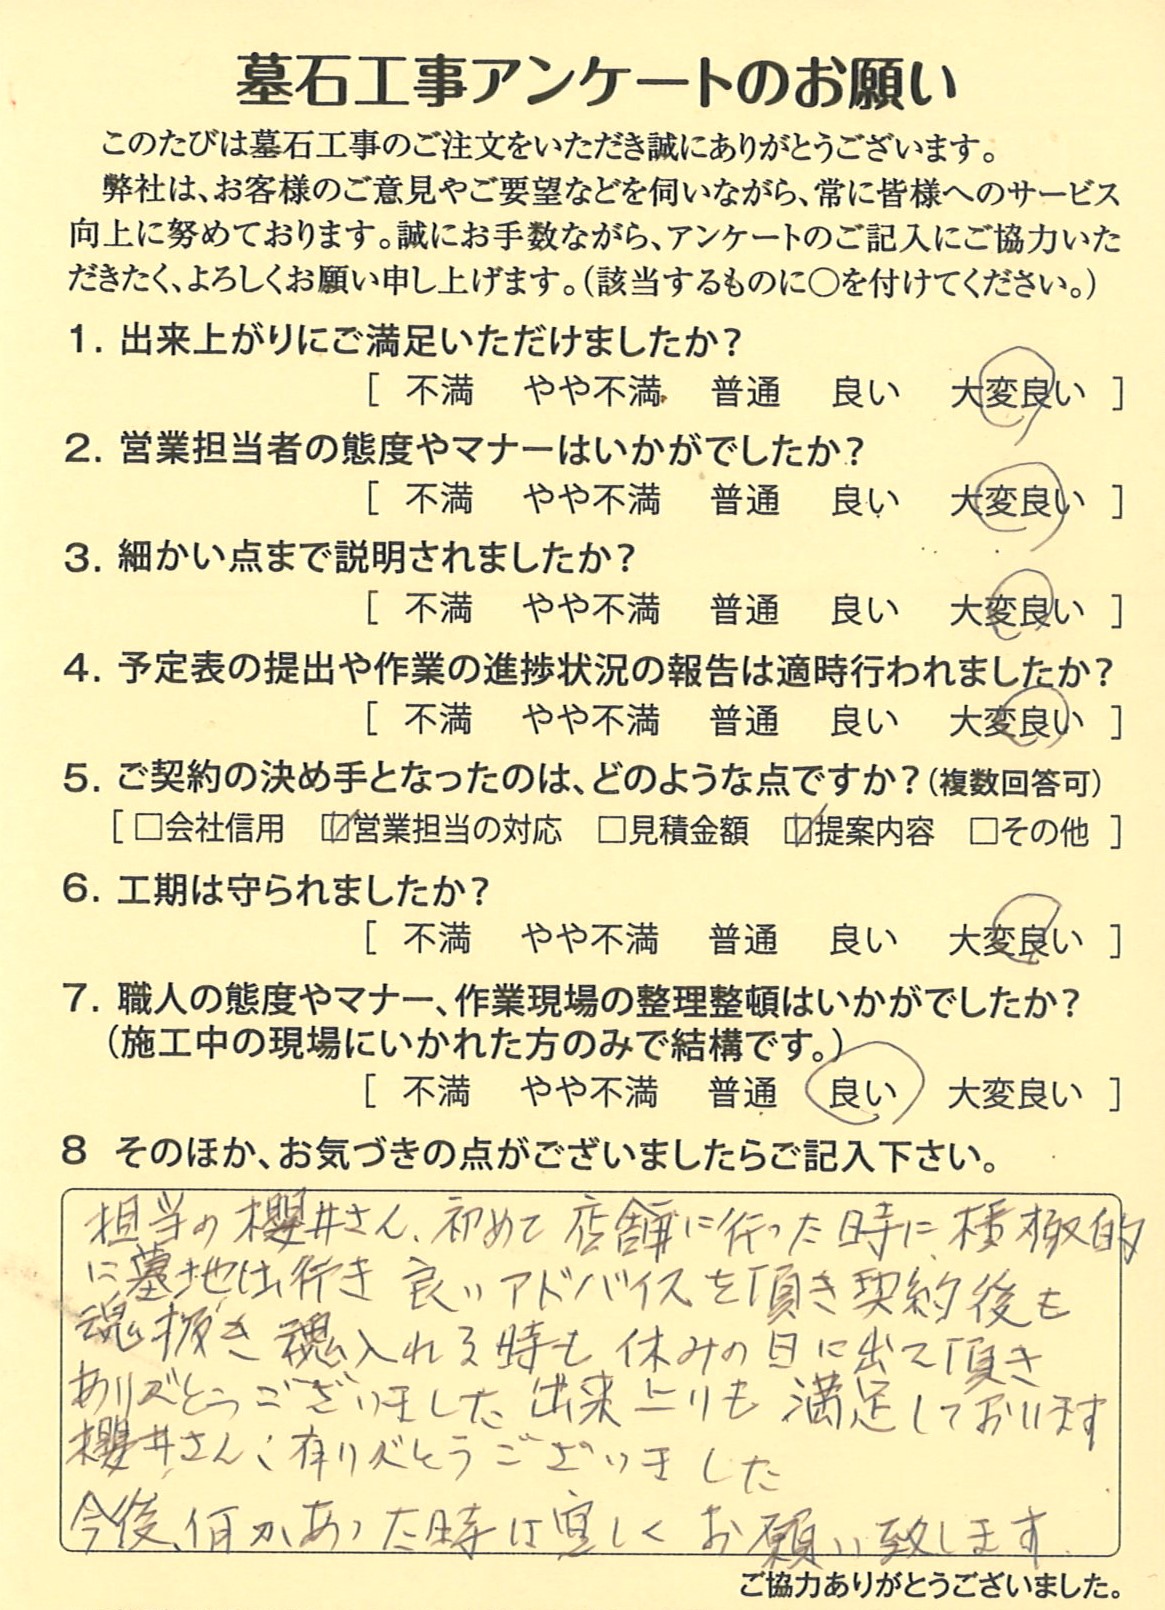 墓石工事アンケートのお願い
このたびは墓石工事のご注文をいただき誠にありがとうございます。
弊社は、お客様のご意見やご要望などを伺いながら、常に皆様へのサービス
向上に努めております。誠にお手数ながら、アンケートのご記入にご協力いた
だきたく、よろしくお願い申し上げます。（該当するものに〇を付けてください。）
1. 出来上がりにご満足いただけましたか？
[ 不満 やや不満 普通 良い 大変良い ]
2. 営業担当者の態度やマナーはいかがでしたか？
[ 不満 やや不満 普通 良い 大変良い ]
3. 細かい点まで説明されましたか？
[ 不満 やや不満 普通 良い 大変良い ]
4. 予定表の提出や作業の進捗状況の報告は適時行われましたか？
[ 不満 やや不満 普通 良い 大変良い ]
5. ご契約の決め手となったのは、どのような点ですか？（複数回答可）
[ □会社信用 ☑営業担当の対応 □見積金額 ☑提案内容 □その他 ]
6. 工期は守られましたか？
[ 不満 やや不満 普通 良い 大変良い ]
7. 職人の態度やマナー、作業現場の整理整頓はいかがでしたか？
（施工中の現場にいかれた方のみで結構です。）
[ 不満 やや不満 普通 良い 大変良い ]
8 そのほか、お気づきの点がございましたらご記入下さい。
担当の櫻井さん、初めて店舗に行った時に、積極的
に墓地は行き 良いアドバイスを頂き契約後も
魂抜き 魂入れる時も 休みの日に出て頂き
ありがとうございました 出来上りも 満足しております
櫻井さん、有りがとうございました
今後、何かあった時は宜しく お願い致します.
ご協力ありがとうございました。